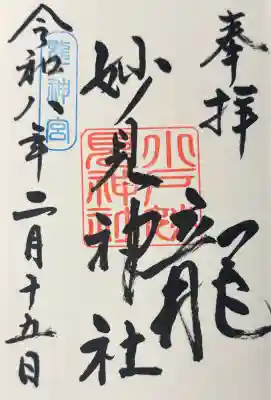 奉拝
龍
小戸妙
見神社
妙見神社
龍神宮
令和八年二月十五日